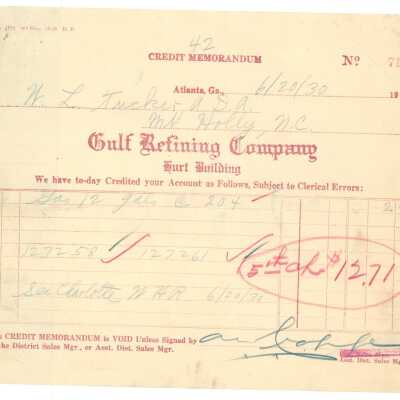 42
CREDIT MEMORANDUM Nº 7
Atlanta, Ga., 6/20/30 19
W. L. Tucker
Mt Holly, N.C.
Gulf Refining Company
Hurt Building
We have to-day Credited your Account as Follows, Subject to Clerical Errors:
Gas 12 gals @ 204 2
123258 127261
5 $12.71
See Charlotte W H R 6/20/30
CREDIT MEMORANDUM is VOID Unless Signed by
the District Sales Mgr., or Asst. Dist. Sales Mgr.
Asst. Dist. Sales Mgr.